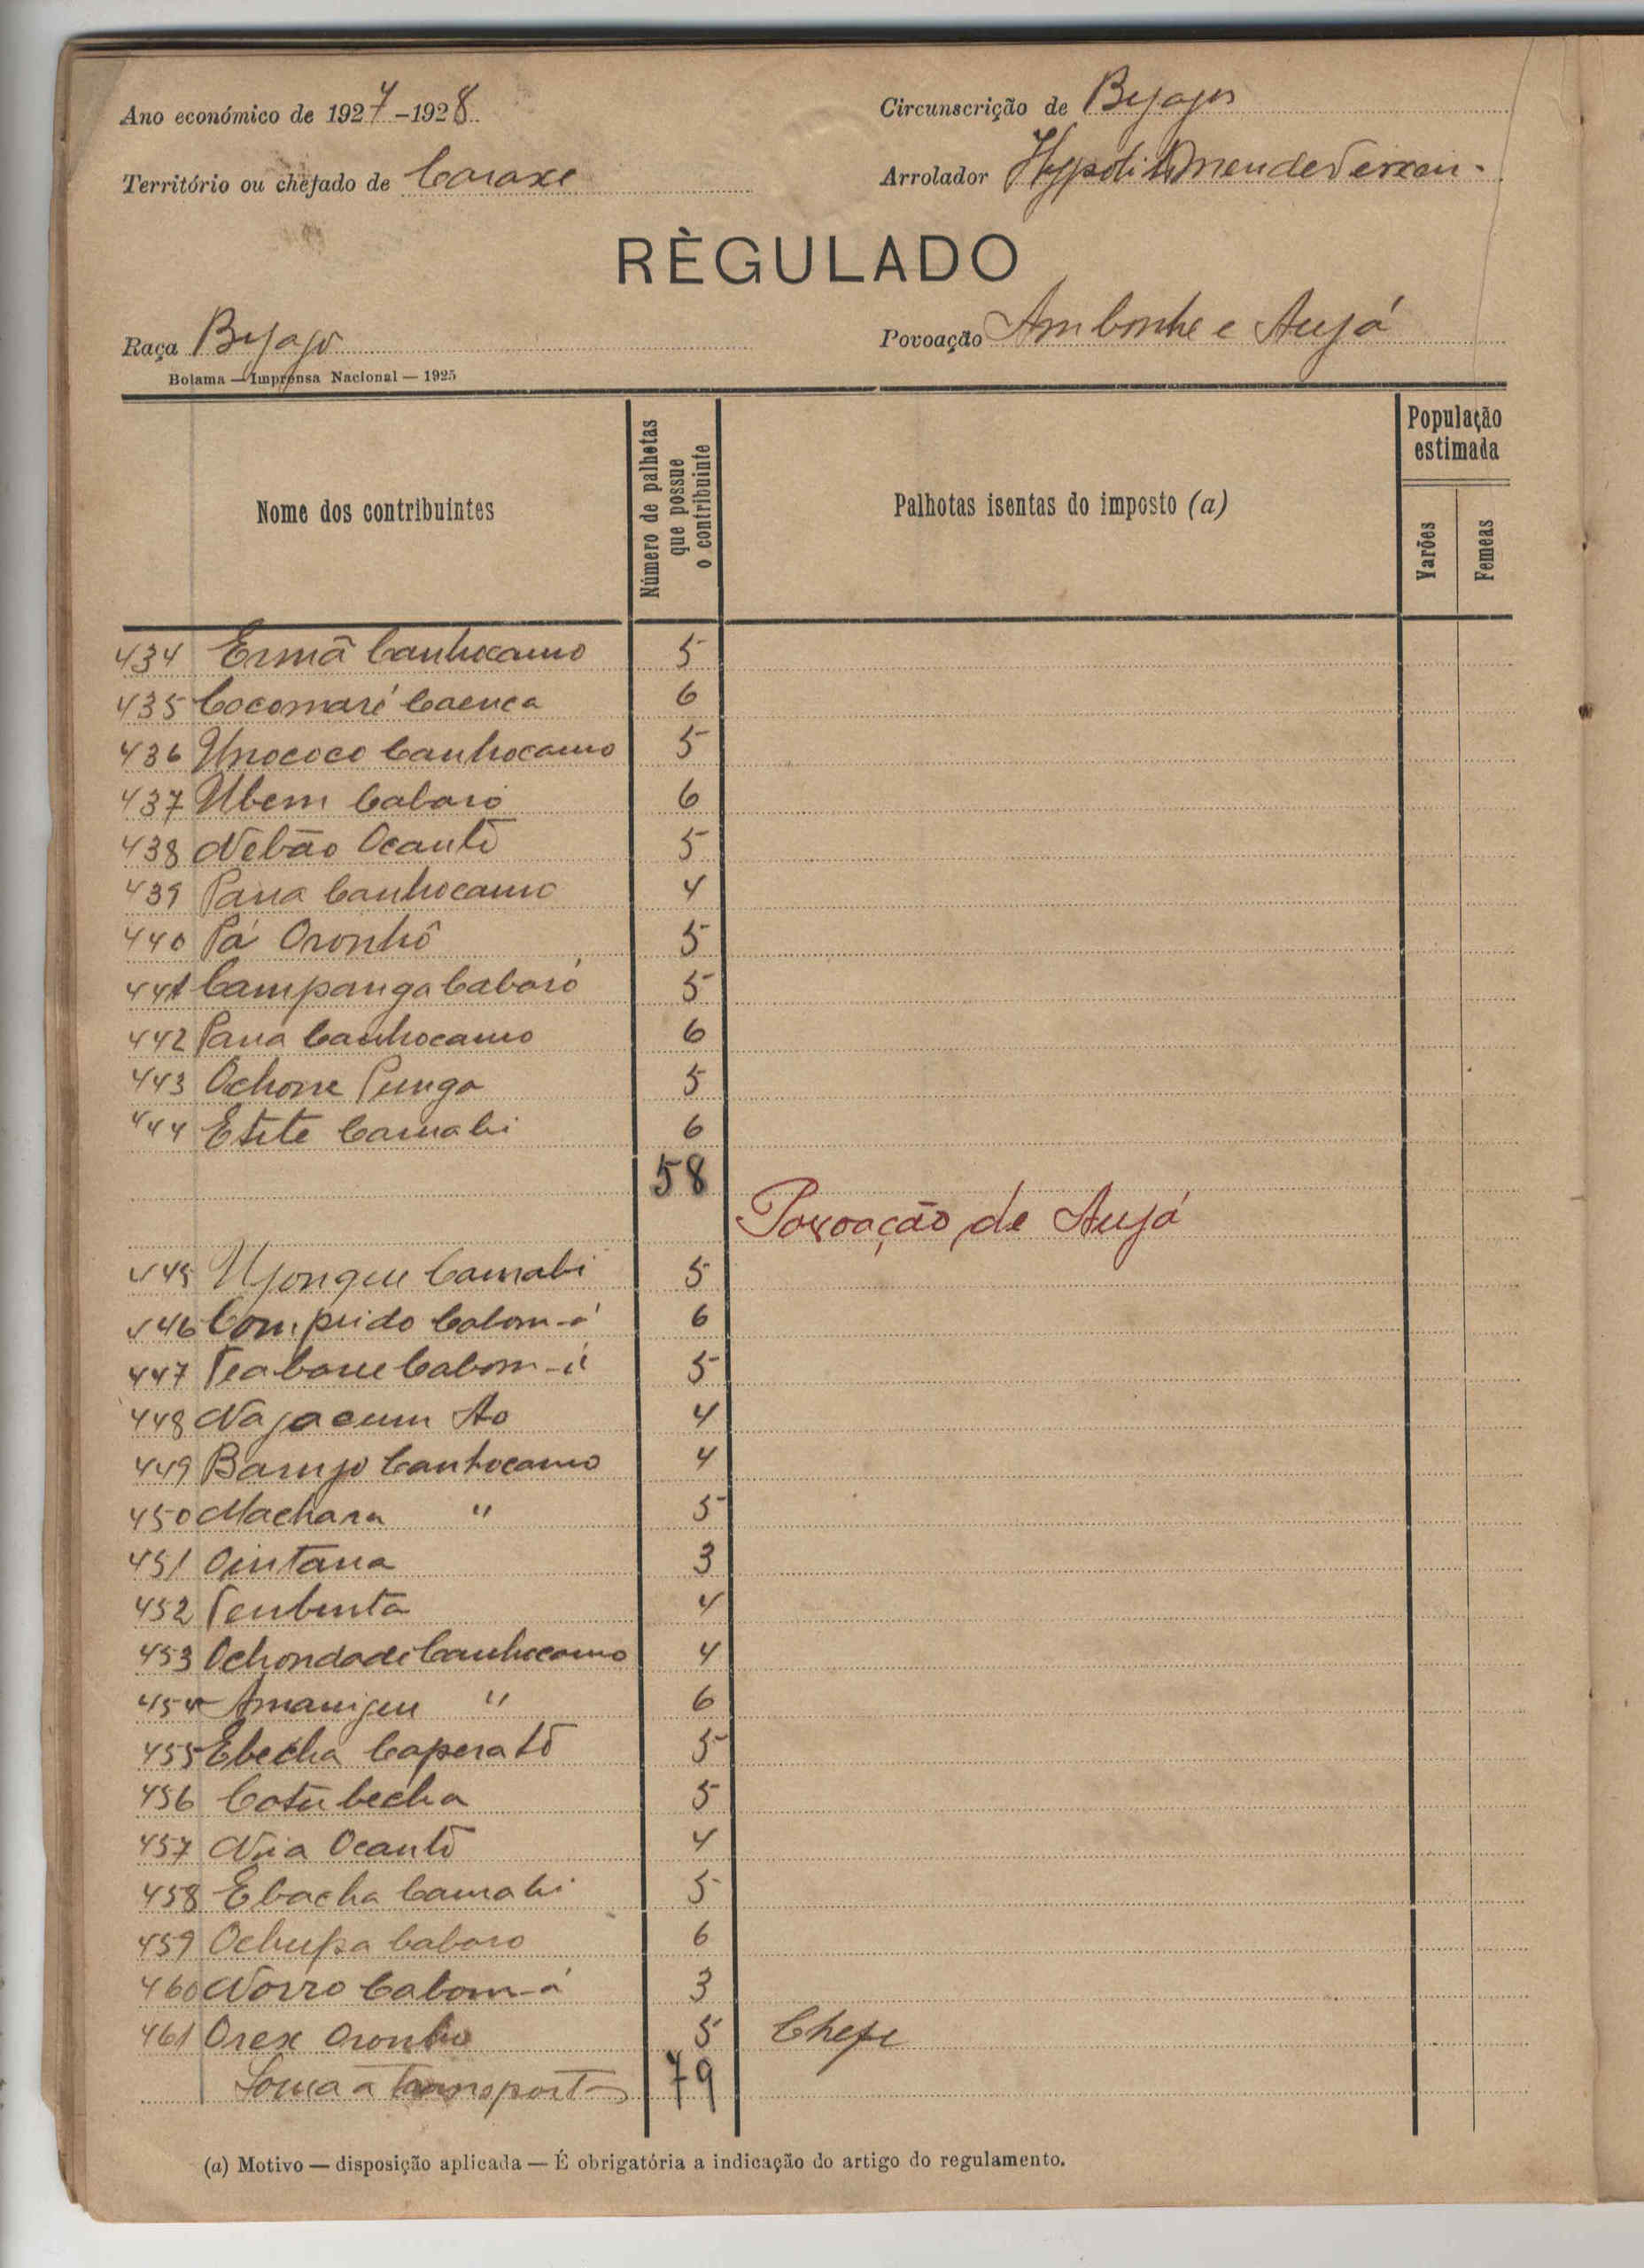 Ano económico de 1927-1928
Circunscrição de Byagos
Território ou chefado de Caraxe
Arrolador Hypolito Mendes
RÈGULADO
Raça Byago
Povoação Ambonhe e Aujá
Bolama — Imprensa Nacional — 1925
Nome dos contribuintes
Número de palhotas que possue o contribuinte
Palhotas isentas do imposto (a)
População estimada
Varões
Femeas
434 Ermã Canhocamo 5
435 Cocomaré Caenca 6
436 Unococo Canhocamo 5
437 Ubem Cabaró 6
438 Nebão Ocantõ 5
439 Pana Canhocamo 4
440 Pá Oronhô 5
441 Campanga Cabaró 5
442 Pana Canhocamo 6
443 Ochone Punga 5
444 Etite Camabi 6
58
Povoação de Aujá
445 Ujongue Camabi 5
446 Comprido Cabom-á 6
447 Cabom-á 5
448 Najacum Ao 4
449 Barujo Canhocamo 4
450 Machana " 5
451 Ointana 3
452 4
453 Ochondadi Canhocamo 4
454 Amanigeu " 6
455 Ebecha Caperatõ 5
456 Cotubecha 5
457 Nia Ocantõ 4
458 Ebacha Camabi 5
459 Ochupa Cabaro 6
460 Norro Cabom-á 3
461 Orex Oronho 5 Chefe
Soma a transportar 79
(a) Motivo — disposição aplicada — É obrigatória a indicação do artigo do regulamento.